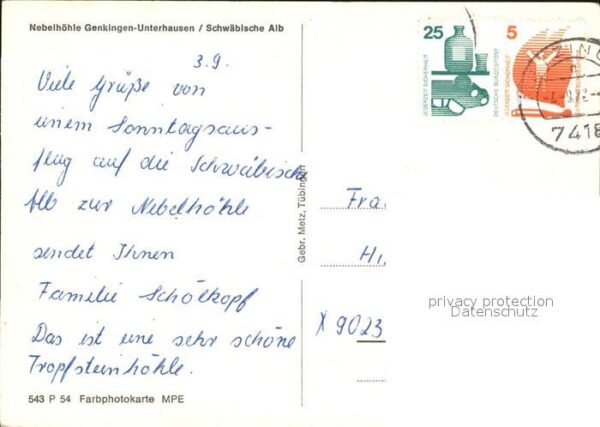 Nebelhöhle Genkingen-Unterhausen / Schwäbische Alb
3.9.
Viele Grüße von
einem Sonntagsaus-
flug auf die Schwäbische
Alb zur Nebelhöhle
sendet Ihnen
Familie Schölkopf
Das ist eine sehr schöne
Tropfsteinhöhle.
543 P 54 Farbphotokarte MPE
Gebr. Metz, Tübingen
25
JEDERZEIT SICHERHEIT
DEUTSCHE BUNDESPOST
5
JEDERZEIT SICHERHEIT
7418
Fra
Hi
X 9023
privacy protection
Datenschutz